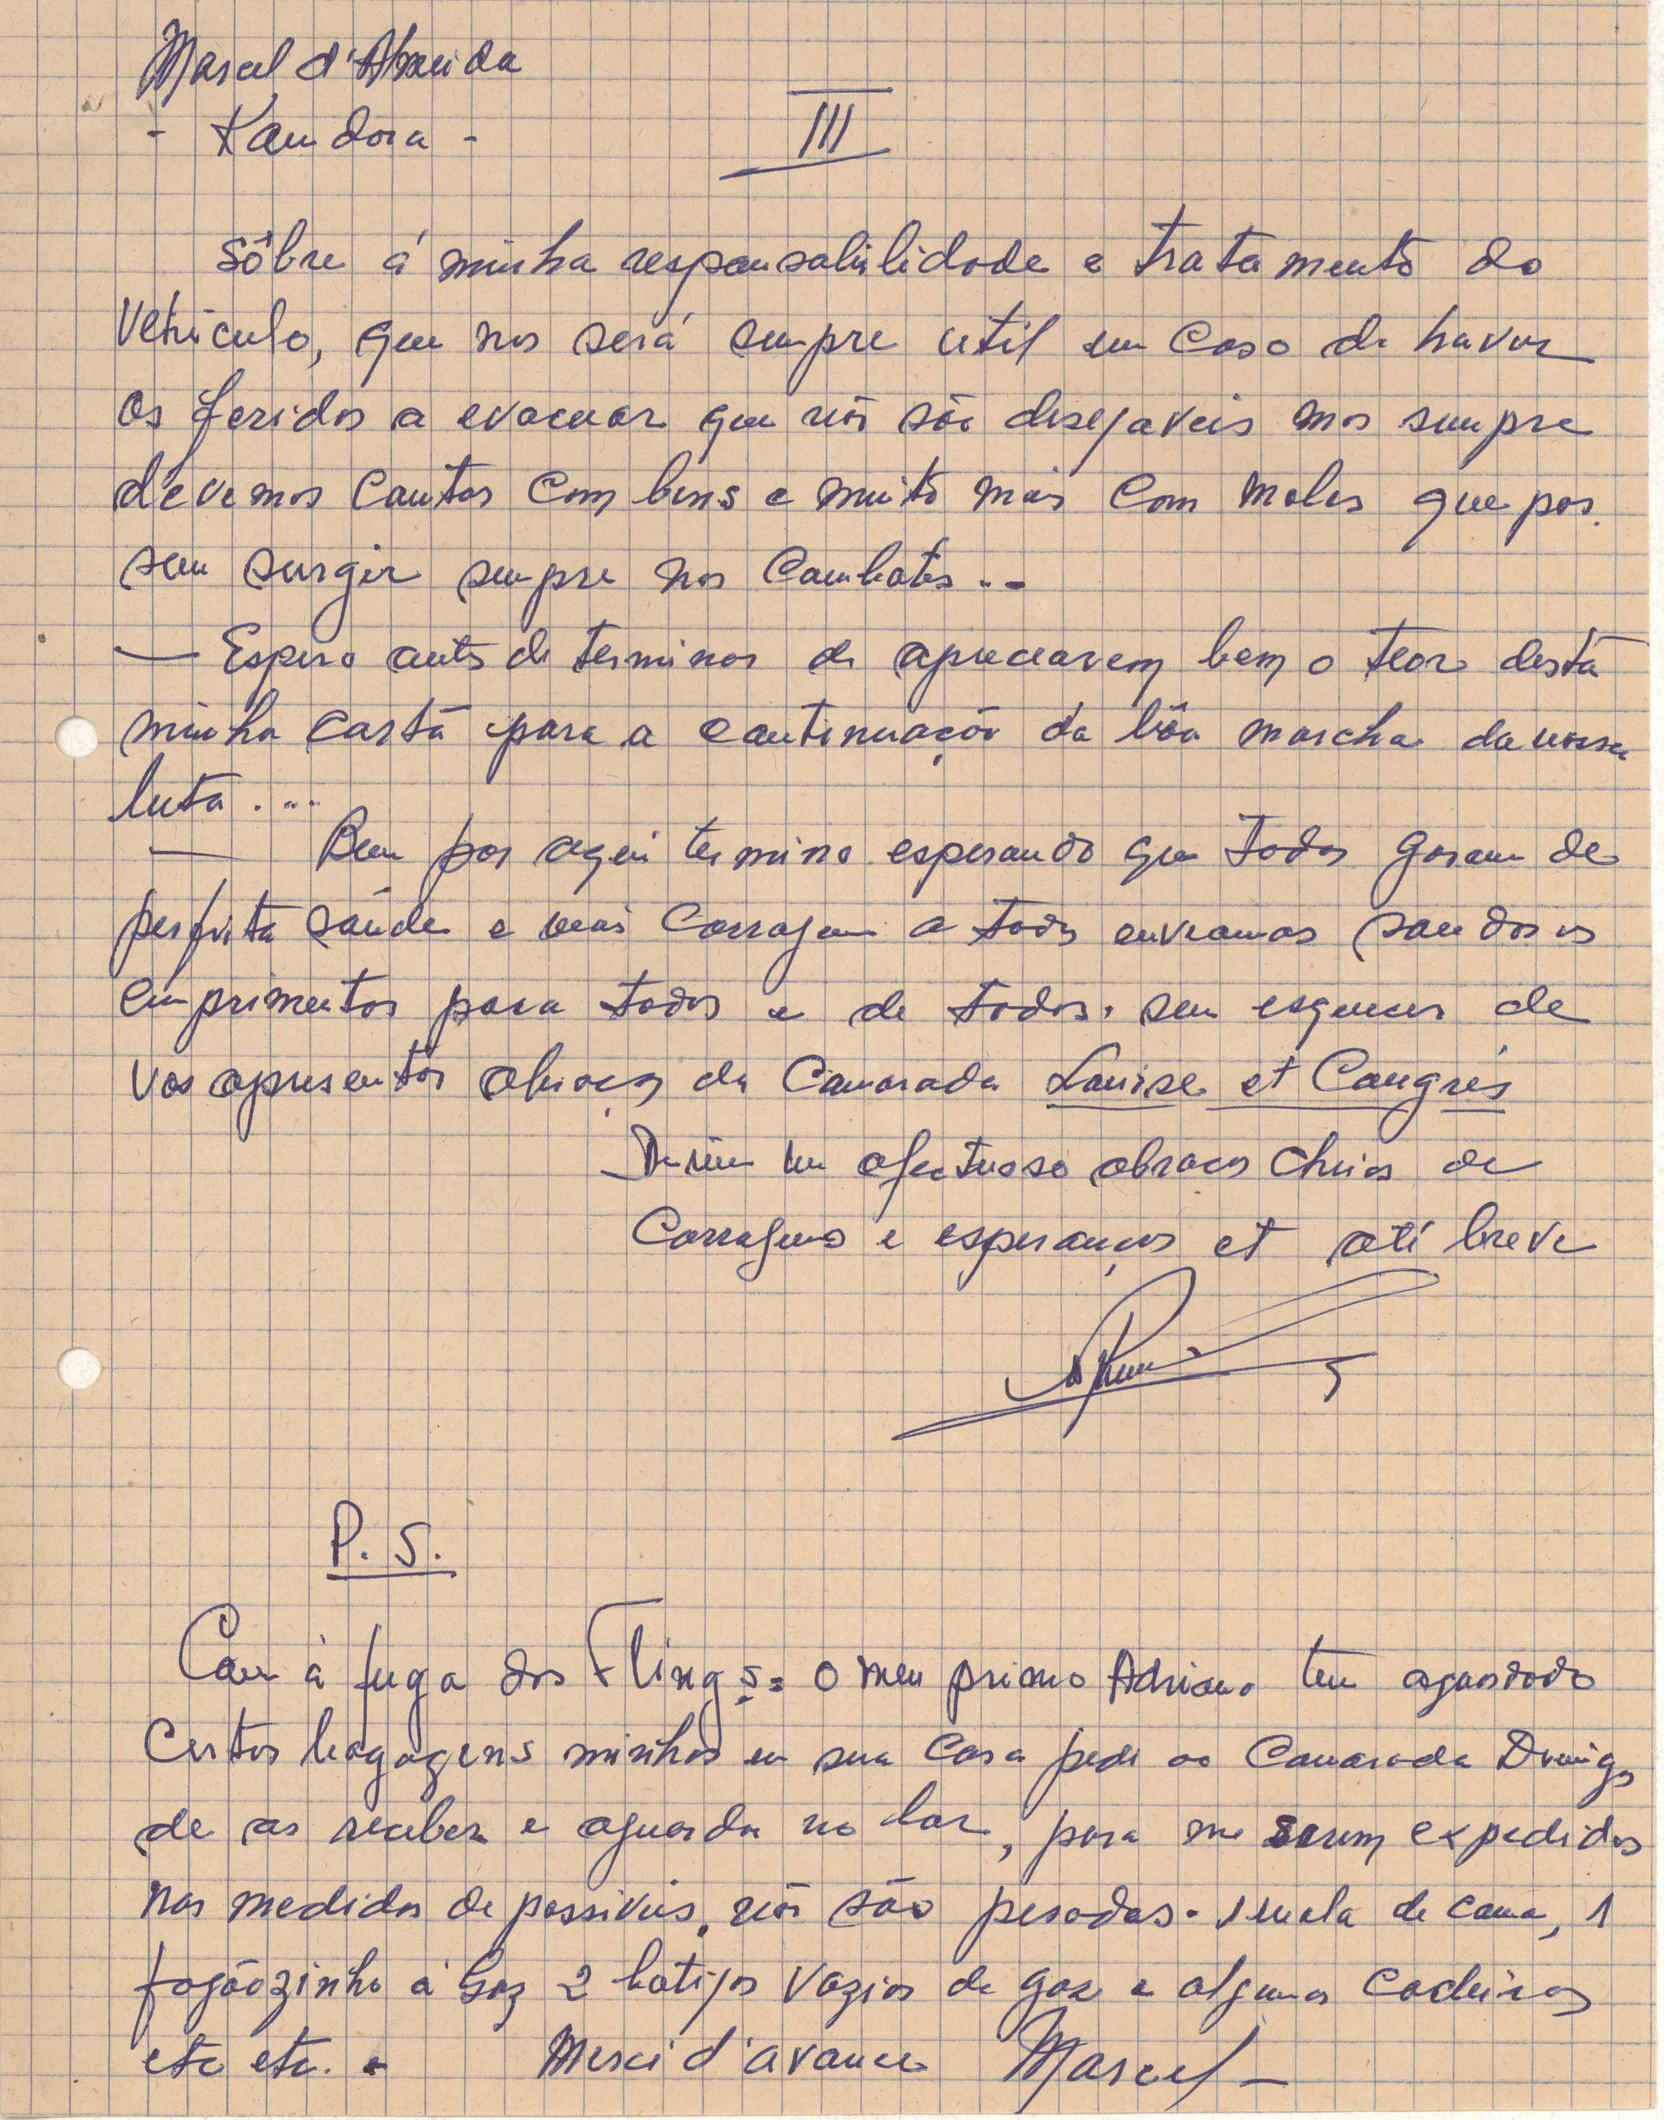 Marcel d'Almeida
- Kandora -
III
Sôbre á minha responsabilidade e tratamento do
Vehiculo, que nos será sempre util em caso de haver
os feridos a evacuar que não são desejaveis mas sempre
devemos contar com bens e muito mais com males que pos
sem surgir sempre nos combates..
— Espero antes de terminar de apreciarem bem o teor desta
minha carta para a continuação da bôa marcha da nossa
luta....
— Bem por aqui termino esperando que todos gosam de
perfeita saúde e mais corragem a todos enviamos saudosos
cumprimentos para todos e de todos. sem esquecer de
vos apresentar abraços da Camarada Louise et Congrés
De mim um afectuoso abraços cheios de
Corragens e esperanças et até breve
P. S.
Com à fuga dos Flings= o meu primo Adriano tem aguardado
certas bagagens minhas em sua casa pedi ao Camarada Domingos
de as receber e aguardar no lar, para me serem expedidas
nas medidas de possiveis, não são pesadas. 1 mala de cama, 1
fogãozinho á Gaz 2 botijas vazias de gaz e algumas cadeiras
etc etc. Merci d'avance Marcel -